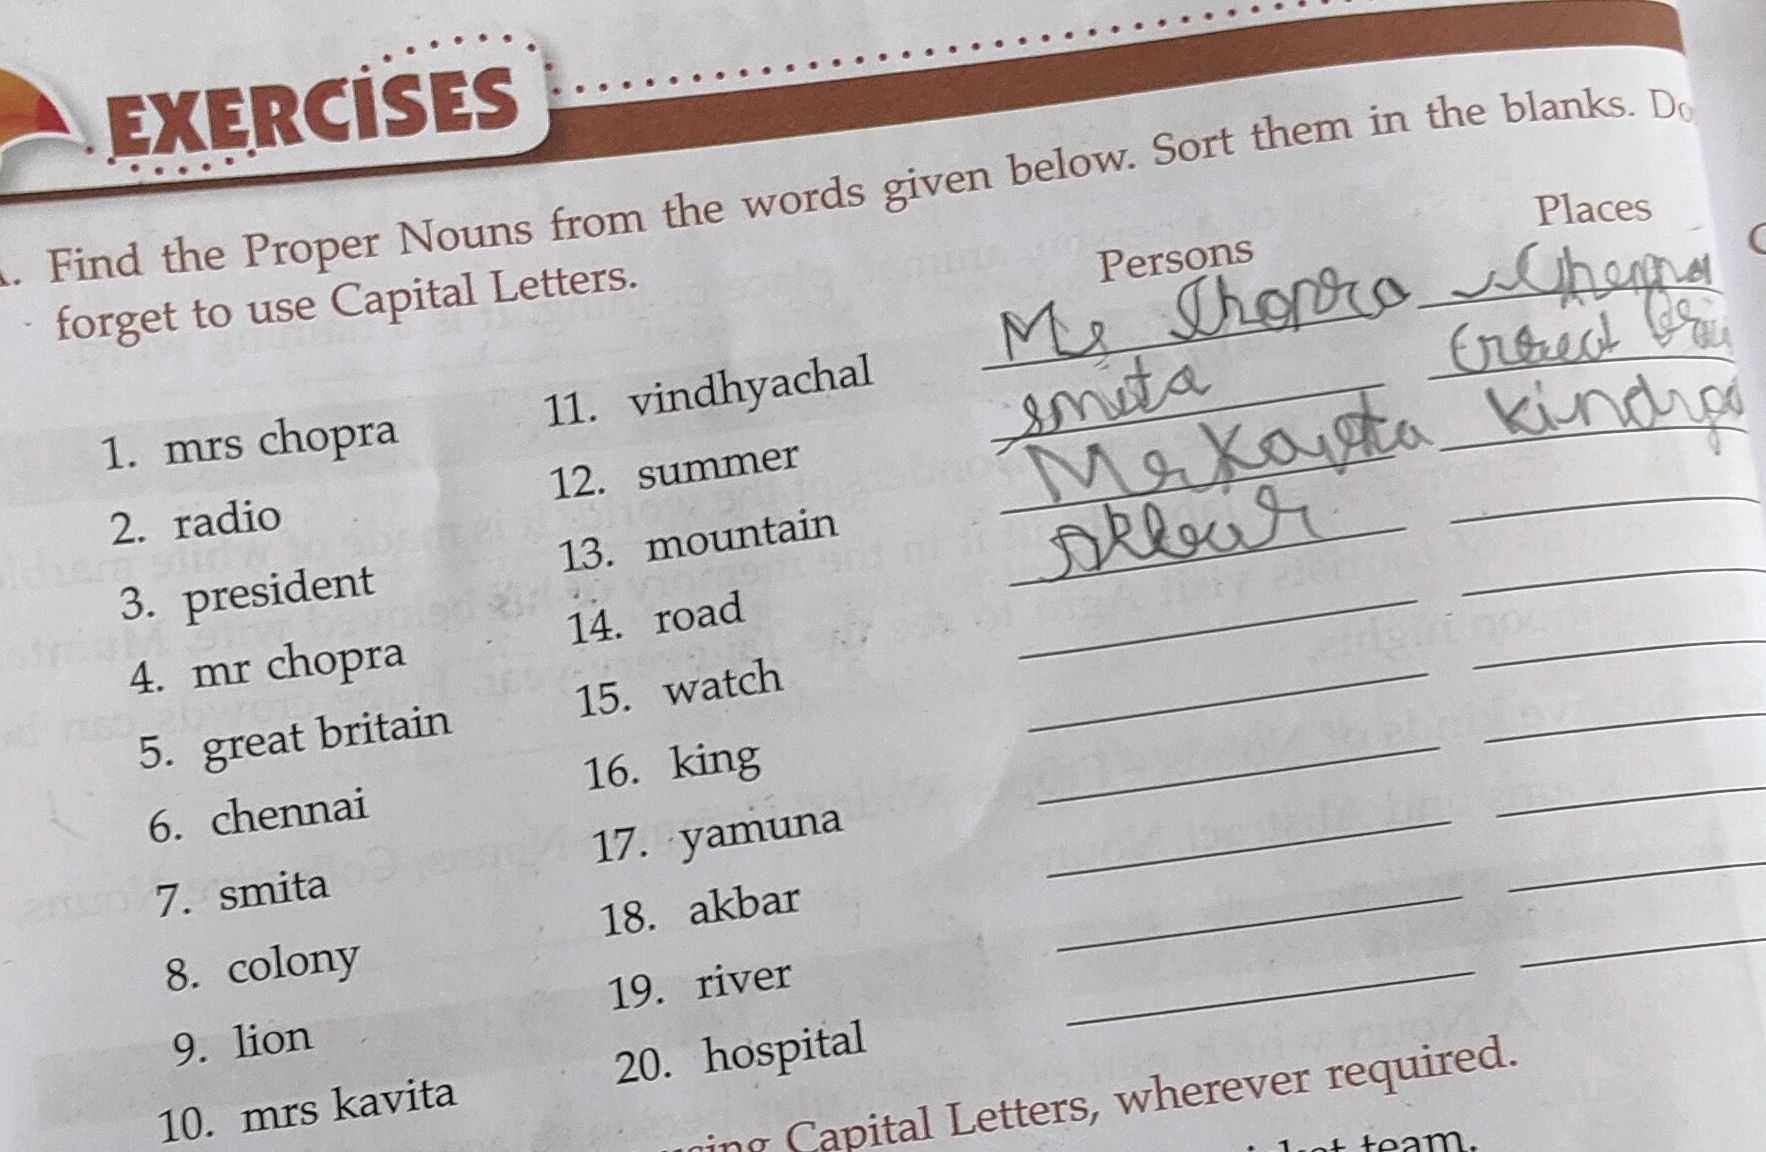 EXERCISES
. Find the Proper Nouns from the words given below. Sort them in the blanks. Do
forget to use Capital Letters.
Persons
Places
1. mrs chopra
2. radio
3. president
4. mr chopra
5. great britain
6. chennai
7. smita
8. colony
9. lion
10. mrs kavita
11. vindhyachal
12. summer
13. mountain
14. road
15. watch
16. king
17. yamuna
18. akbar
19. river
20. hospital
Chopra
smita
Kavita
Chennai
Capital Letters, wherever required.
team.